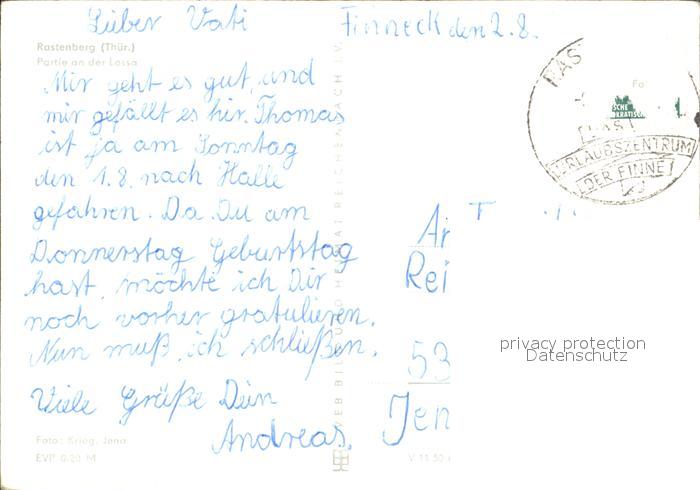 Lieber Vati
Finneck den 2.8.
Rastenberg (Thür.)
Partie an der Lossa
Mir geht es gut, und
mir gefällt es hir. Thomas
ist ja am Sonntag
den 1.8. nach Halle
gefahren. Da Du am
Donnerstag Geburtstag
hast, möchte ich Dir
noch vorher gratulieren.
Nun muß ich schließen.
Viele Grüße Dein
Andreas.
Foto: Krieg, Jena
EVP 0.20 M
V 11 50
RAS
URLAUBSZENTRUM
DER FINNE
Ar
Rei
53
Jen
privacy protection
Datenschutz